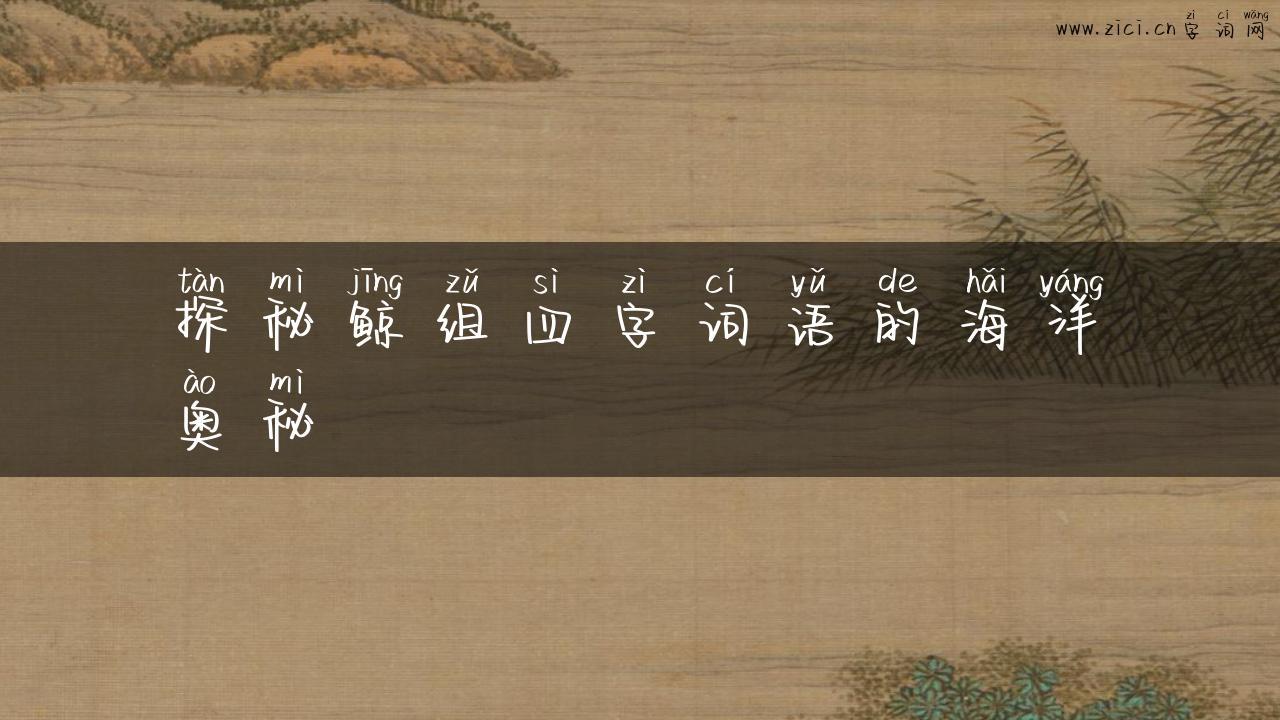 zì cí wǎng
www.zici.cn 字词网
tàn mì jīng zǔ sì zì cí yǔ de hǎi yáng
探秘鲸组四字词语的海洋
ào mì
奥秘